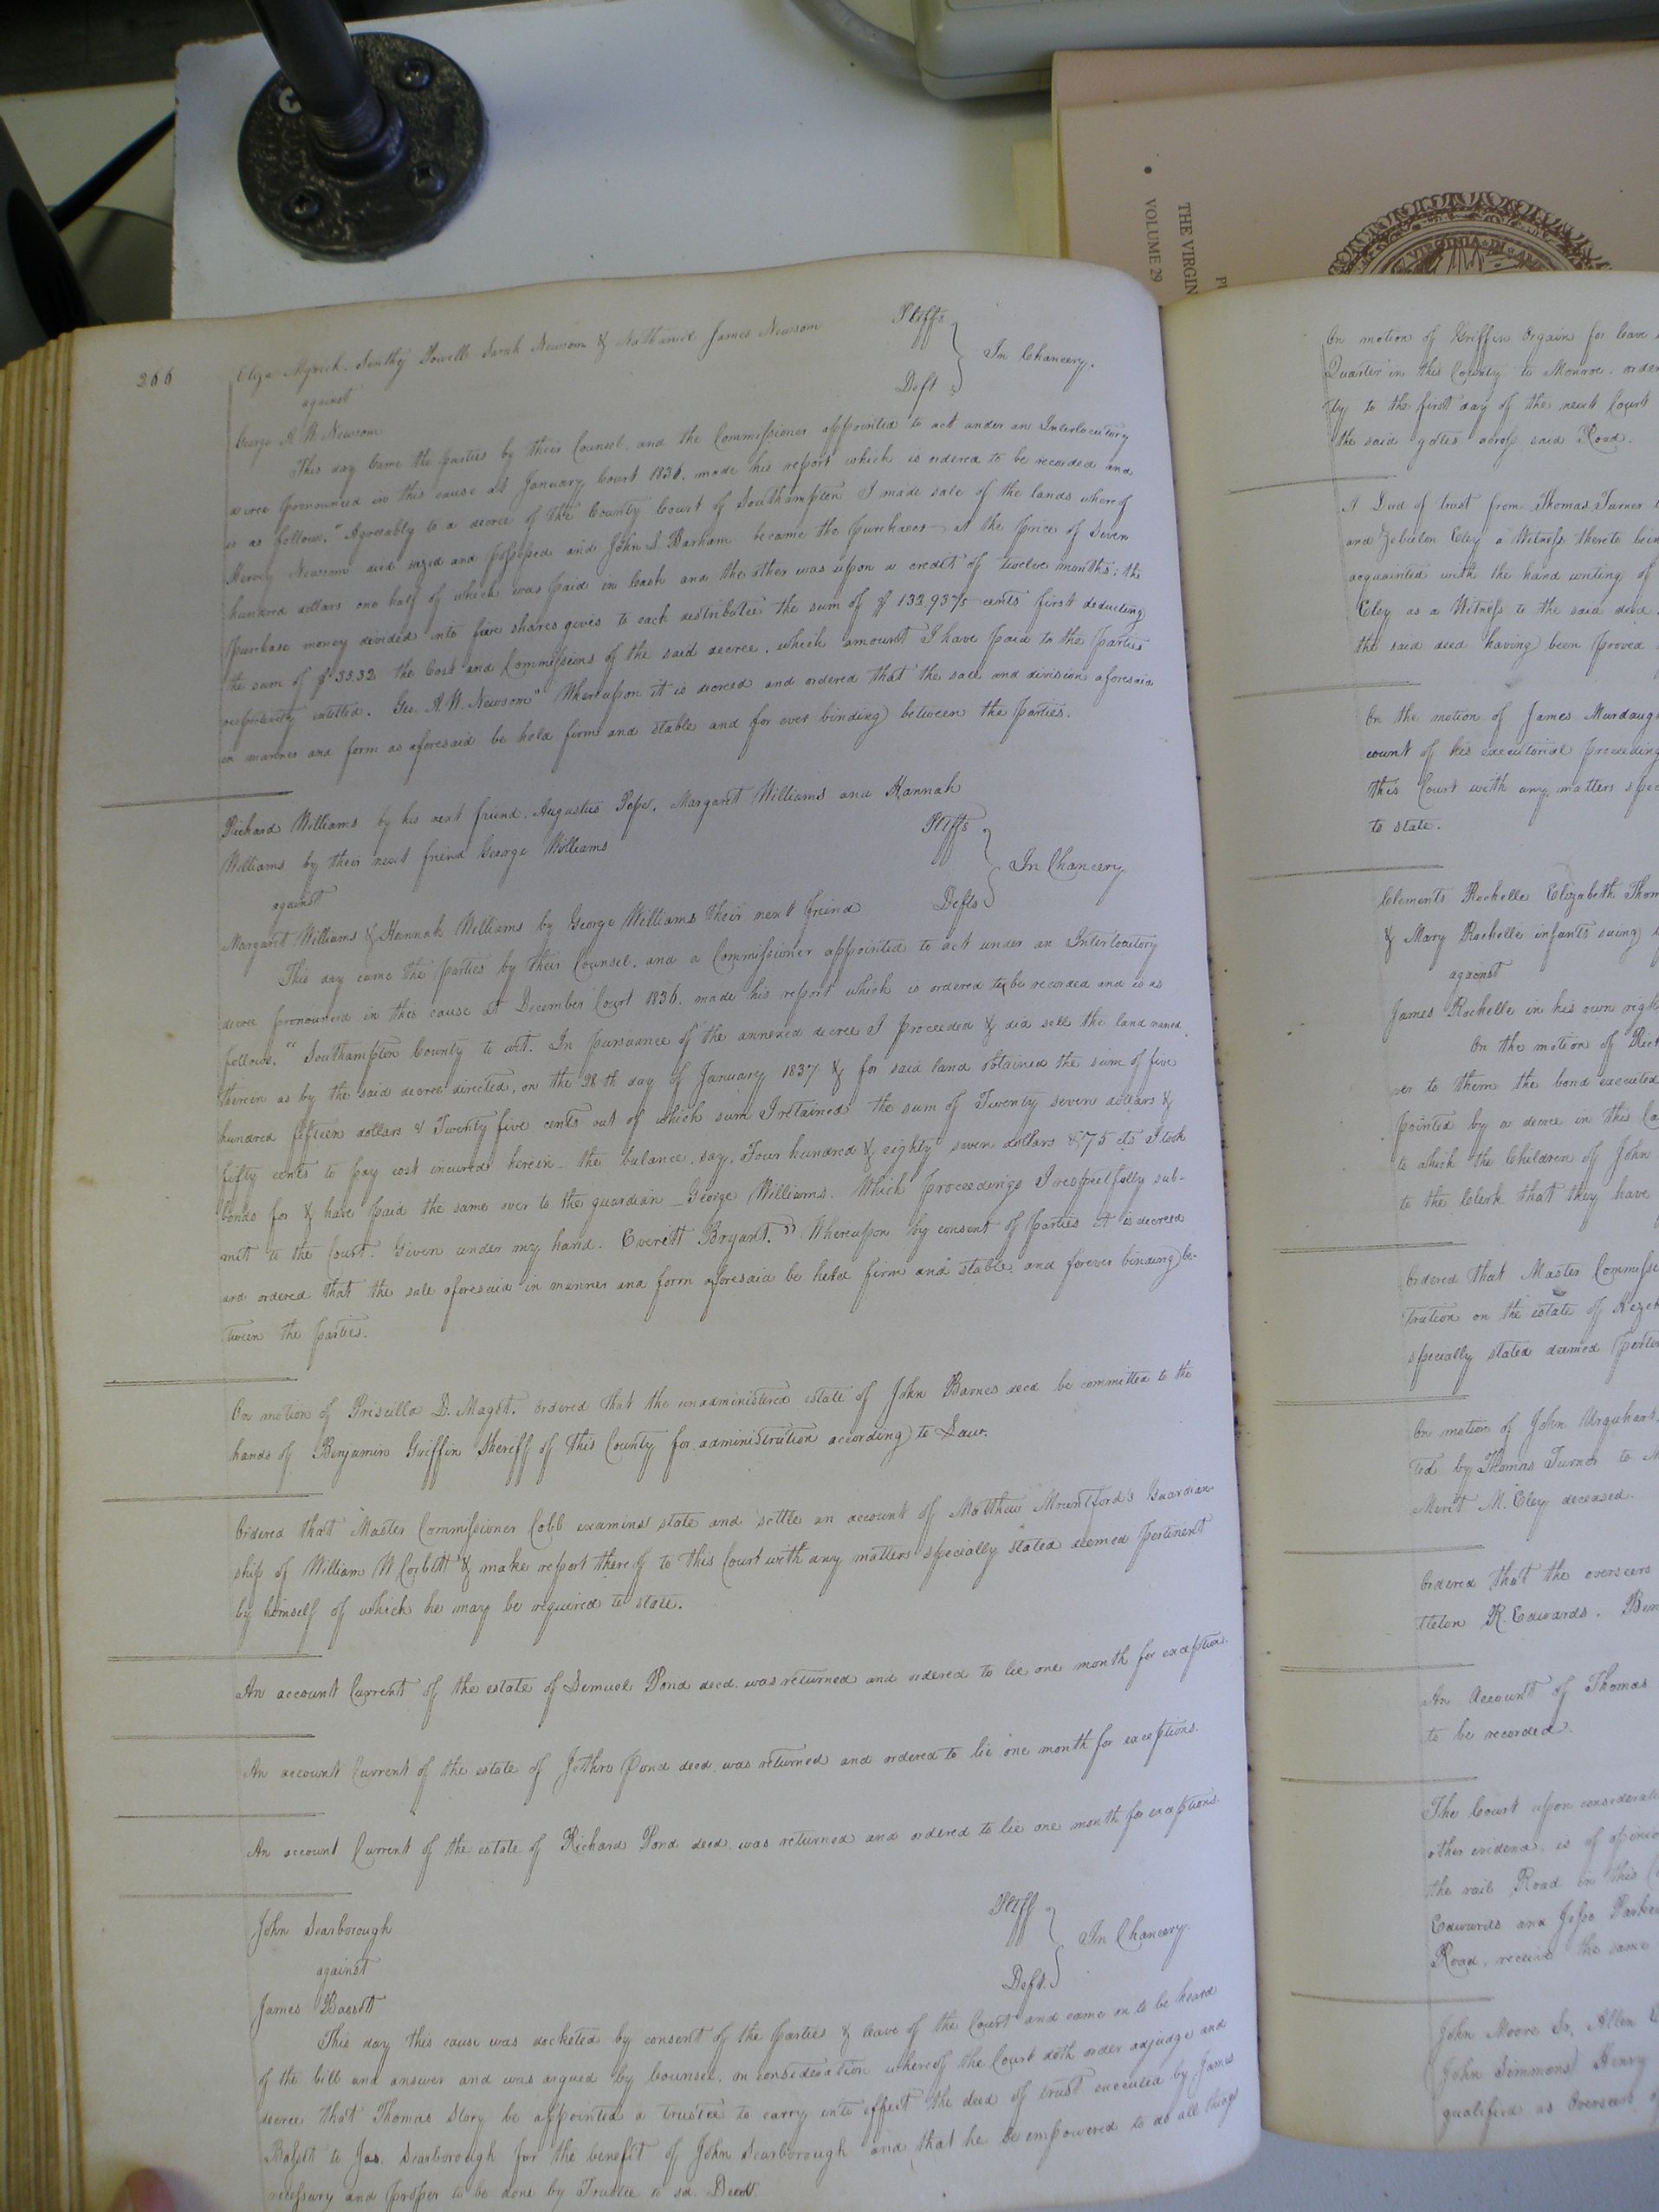 THE VIRGIN
VOLUME 29
VIRGINIA IN
266
Eliza Myrick. Senthy Powell. Sarah Newsom & Nathaniel James Newsom Pltffs
against
In Chancery.
George A. W. Newsom Deft
This day Came the parties by their Counsel, and the Commissioner appointed to act under an Interlocutory
decree pronounced in this cause at January Court 1836. made his report which is ordered to be recorded and
is as follows. "Agreeably to a decree of the County Court of Southampton I made sale of the lands whereof
Hervey Newsom died seized and possessed and John S. Barham became the purchaser at the price of Seven
hundred dollars one half of which was paid in Cash and the other was upon a credit of twelve months; the
purchase money divided into five shares gives to each distributee the sum of $ 133.9375 cents first deducting
the sum of $ 33.32 the Cost and Commissions of the said decree, which amount I have paid to the parties
respectively intitled. Geo. A. W. Newsom" Whereupon it is decreed and ordered that the sale and division aforesaid
in manner and form as aforesaid be held firm and stable and for ever binding between the parties.
Richard Williams by his next friend. Augustus Pope, Margaret Williams and Hannah
Williams by their next friend George Williams Pltffs
against
In Chancery
Margaret Williams & Hannah Williams by George Williams their next friend Defts
This day came the parties by their Counsel, and a Commissioner appointed to act under an Interlocutory
decree pronounced in this cause at December Court 1836. made his report which is ordered to be recorded and is as
follows. "Southampton County to wit. In pursuance of the annexed decree I proceeded & did sell the land named
therein as by the said decree directed, on the 28th day of January 1837 & for said land obtained the sum of five
hundred fifteen dollars & Twenty five cents out of which sum I retained the sum of Twenty seven dollars &
fifty cents to pay cost incurred herein. the balance, say, Four hundred & eighty seven dollars & 75 cts I took
bonds for & have paid the same over to the guardian George Williams. Which proceedings I respectfully sub-
mit to the Court. Given under my hand. Everitt Bryant." Whereupon by consent of parties it is decreed
and ordered that the sale aforesaid in manner and form aforesaid be held firm and stable, and forever binding be-
tween the parties.
On motion of Priscilla D. Magét. ordered that the unadministered estate of John Barnes decd be committed to the
hands of Benjamin Griffin Sheriff of this County for administration according to Law.
Ordered that Master Commissioner Cobb examine state and settle an account of Matthew Mountford's Guardian-
ship of William W Corbitt & make report thereof to this Court with any matters specially stated deemed pertinent
by himself of which he may be required to state.
An account Current of the estate of Lemuel Pond decd. was returned and ordered to lie one month for exceptions.
An account Current of the estate of Jethro Pond decd. was returned and ordered to lie one month for exceptions.
An account Current of the estate of Richard Pond decd. was returned and ordered to lie one month for exceptions.
John Scarborough Pltff
against
In Chancery.
James Deft.
This day this cause was docketed by consent of the parties & leave of the Court and came on to be heard
of the bill and answer and was argued by Counsel, on consideration whereof the Court doth order adjudge and
decree that Thomas Story be appointed a trustee to carry into effect the deed of trust executed by James
to Jas. Scarborough for the benefit of John Scarborough and that he be empowered to do all things
necessary and proper to be done by Trustee to sd. Deed.
On motion of Griffin Orgain for leave
Quarter in this County to Monroe. order
ty to the first day of the next Court
the said gates across said Road.
A Deed of trust from Thomas Turner
and Zebulon Eley a Witness thereto bein
acquainted with the hand writing of
Eley as a Witness to the said deed.
the said deed having been proved
On the motion of James Murdaug
count of his executorial proceeding
this Court with any matters spec
to state.
Clements Rochelle Elizabeth Thom
& Mary Rochelle infants suing
against
James Rochelle in his own right
On the motion of Rich
ver to them the bond executed
pointed by a decree in this Ca
to which the Children of John
to the Clerk that they have
Ordered that Master Commissi
tration on the estate of Hezek
specially stated deemed pertin
On motion of John Urquhart,
ted by Thomas Turner to
Merit M. Eley deceased.
Ordered that the overseers
ttleton R. Edwards. Ben
An Account of Thomas
to be recorded.
The Court upon considerati
other evidence, is of opinio
the rail Road in this
Edwards and Jesse Parker
Road, receive the same
John Moore Sr. Allen
John Simmons Henry
qualified as Overseers of